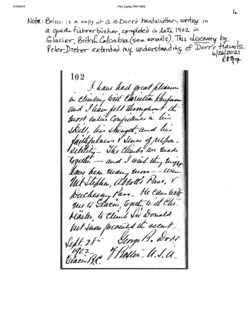 1.
Note: Below is a copy of G.B. Dorr's handwritten entry in
a guide führerbücher, completed in late 1902 in
Glacier, British Columbia (see emails). This discovery by
Peter Dreher extended my understanding of Dorr's travels.
102
I have had great pleasure
in climbing with Christian Kaufmann
and I have felt throughout the
most entire confidence in his
skill, his strength, and his
faithfulness & sense of respon-
sibility. The climbs we made
together — and I wish they might
have been many more — were
Mt Stephen, Abbott's Pass, &
Duchesnay Pass. He came with
me to Glacier, together with Chr.
Häsler, to climb Sir Donald
but snow prevented the ascent.
Sept. 28th George B. Dorr
1902 of Boston, U.S.A.
Glacier, B.C.